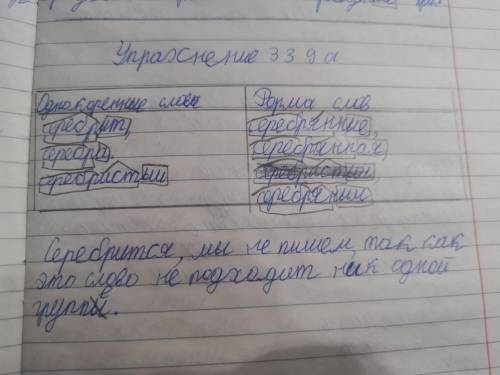 Упражнение 339а
Однокоренные слова Форма слов
серебрит, серебрянные,
серебра, серебрянная,
серебристый серебристый,
серебряный
Серебрится, мы не пишем, так как
это слово не подходит ник одной
группы.